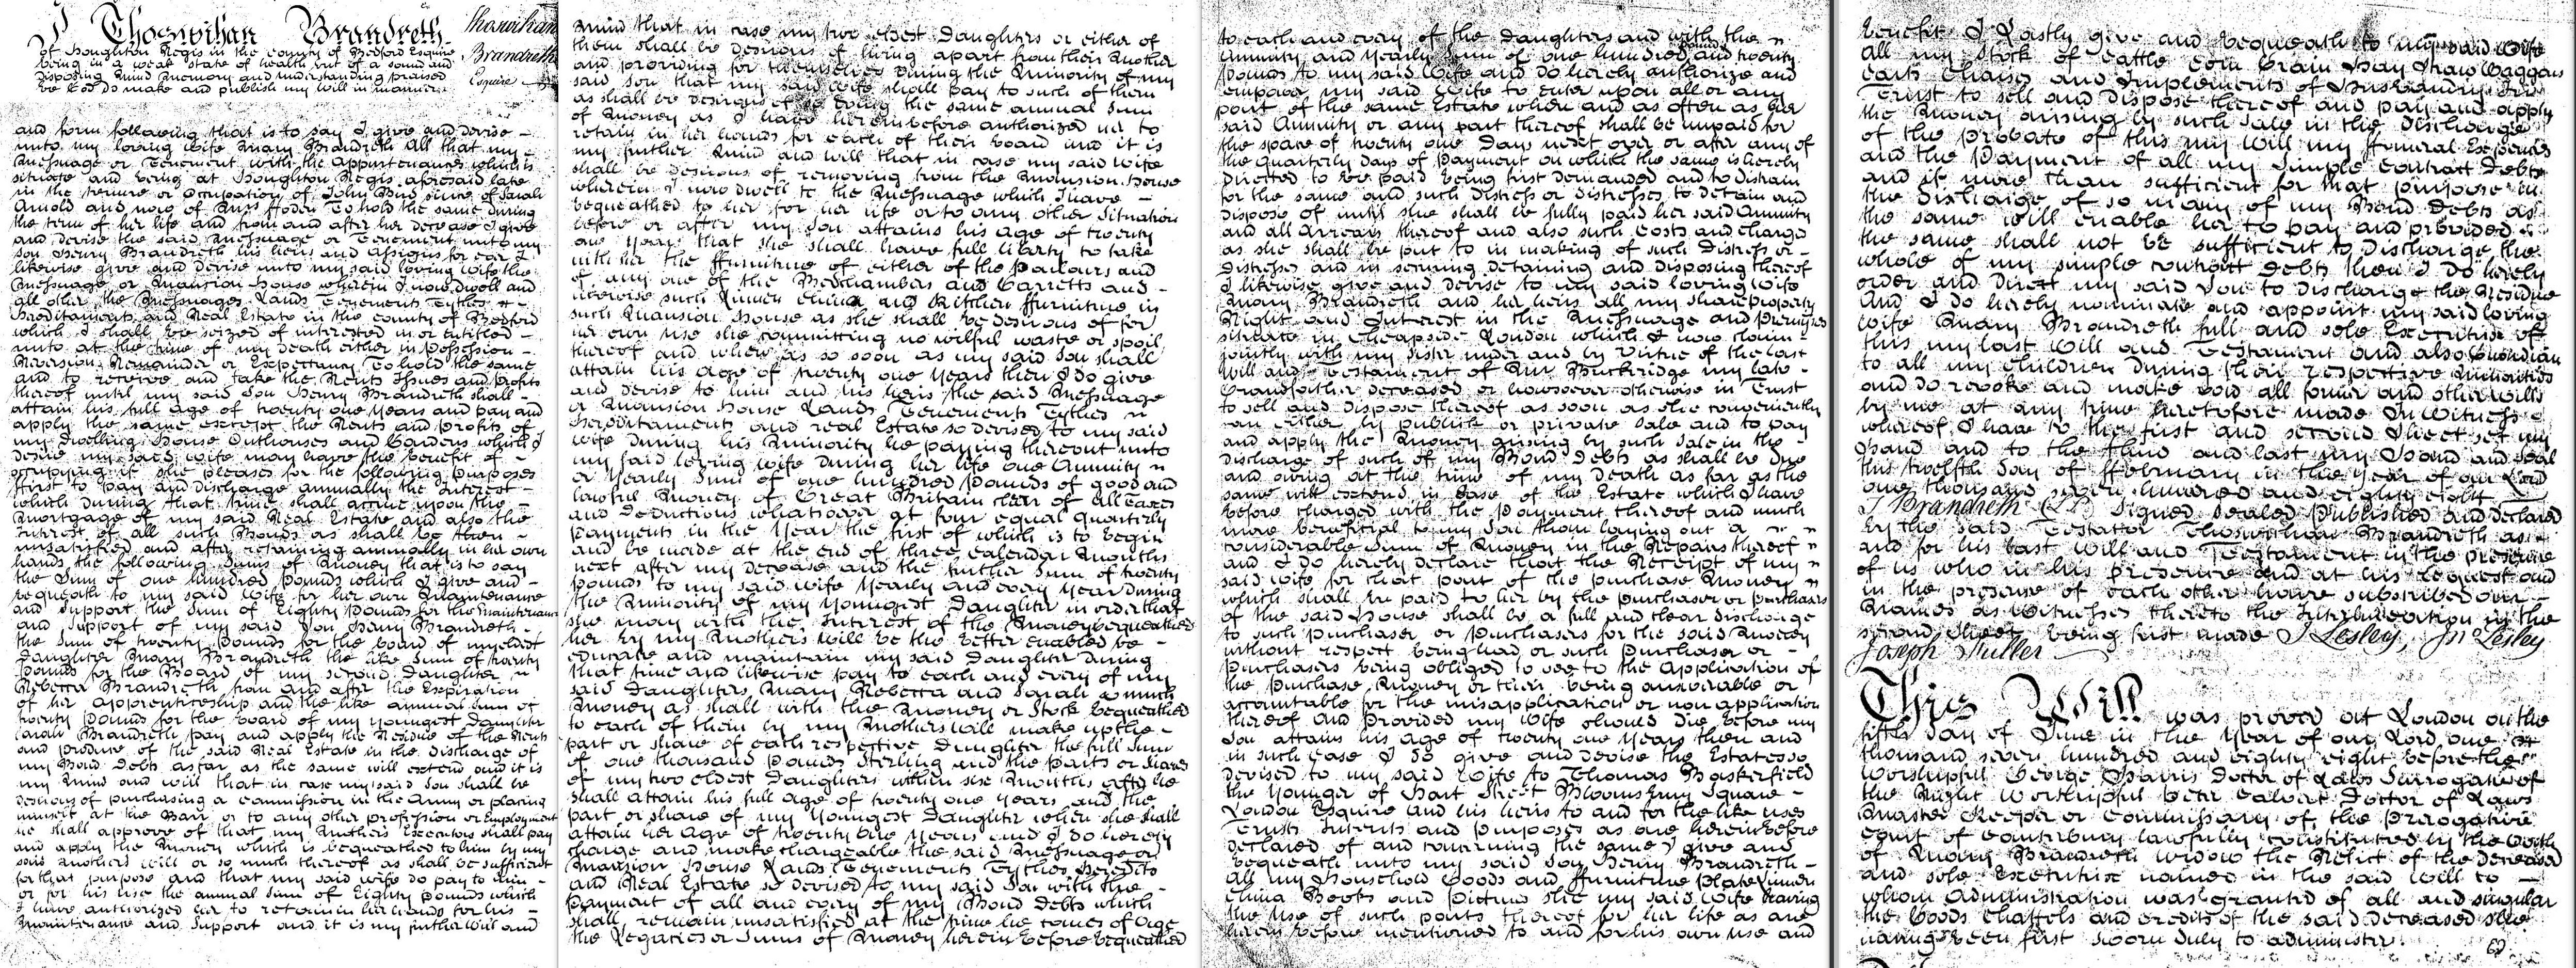 I Thoswihan Brandreth
of Houghton Regis in the county of Bedford Esquire
being in a weak state of health but of a sound and
disposing mind memory and understanding praised
be God do make and publish my will in manner
Thoswihan
Brandreth
Esquire
and form following that is to say I give and devise
unto my loving wife Mary Brandreth All that my
Messuage or Tenement with the appurtenances which is
situate and being at Houghton Regis aforesaid late
in the tenure or Occupation of John Bird since of Sarah
Arnold and now of To hold the same during
the term of her life and from and after her decease I give
and devise the said Messuage or Tenement unto my
son Henry Brandreth his heirs and assigns for ever I
likewise give and devise unto my said loving wife the
Messuage or Mansion House wherein I now dwell and
all other the Messuages Lands Tenements Tythes
Hereditaments and Real Estate in the county of Bedford
which I shall be seized of interested in or entitled
unto at the time of my Death either in Possession
Reversion Remainder or Expectancy To hold the same
and to receive and take the Rents Issues and profits
thereof until my said Son Henry Brandreth shall
attain his full age of twenty one years and pay and
apply the same except the Rents and profits of
my Dwelling House Outhouses and Gardens which I
desire my said wife may have the benefit of
occupying if she pleases for the following purposes
first to pay and discharge annually the Interest
which during that time shall accrue upon the
Mortgage of my said Real Estate and also the
Interest of all such Bonds as shall be then
unsatisfied and after retaining annually in her own
hands the following Sums of Money that is to say
the Sum of one hundred pounds which I give and
bequeath to my said wife for her own Maintenance
and support the sum of Eighty Pounds for the maintenance
and support of my said Son Henry Brandreth
the Sum of twenty pounds for the board of my eldest
Daughter Mary Brandreth the like Sum of twenty
pounds for the Board of my second Daughter
Rebecca Brandreth from and after the Expiration
of her Apprenticeship and the like annual sum of
twenty pounds for the board of my youngest Daughter
Sarah Brandreth pay and apply the Residue of the Rents
and produce of the said Real Estate in the discharge of
my Bond Debts as far as the same will extend and it is
my mind and will that in case my said Son shall be
desirous of purchasing a commission in the Army or placing
himself at the Bar or to any other profession or Employment
he shall approve of that my Mothers Executors shall pay
and apply the Money which is bequeathed to him by my
said Mothers will or so much thereof as shall be sufficient
for that purpose and that my said wife do pay to him
or for his use the annual Sum of Eighty pounds which
I have authorized her to retain in her hands for his
Maintenance and support and it is my further will and
mind that in case my two eldest Daughters or either of
them shall be desirous of living apart from their Mother
and providing for themselves during the Minority of my
said Son that my said wife shall pay to such of them
as shall be desirous of so doing the same annual Sum
of Money as I have hereinbefore authorized her to
retain in her hands for each of their board and it is
my further Mind and will that in case my said wife
shall be desirous of removing from the Mansion House
wherein I now dwell to the Messuage which I have
bequeathed to her for her life or to any other Situation
before or after my Son attains his age of twenty
one years that she shall have full liberty to take
with her the ffurniture of either of the Parlours and
of any one of the Bedchambers and Garretts and
likewise such Linnen China and Kitchen ffurniture in
such Mansion House as she shall be desirous of for
her own use she committing no wilful waste or spoil
thereof and when as so soon as my said Son shall
attain his age of twenty one years then I do give
and devise to him and his heirs the said Messuage
or Mansion House Lands Tenements Tythes
Hereditaments and real Estate so devised to my said
wife during his Minority he paying thereout unto
my said loving wife during her life one Annuity
or yearly Sum of one hundred pounds of good and
lawful Money of Great Britain clear of all Taxes
and deductions whatsoever at four equal quarterly
payments in the year the first of which is to begin
and be made at the end of three calendar Months
next after my decease and the further Sum of twenty
pounds to my said wife yearly and every year during
the Minority of my youngest Daughter in order that
she may with the Interest of the Money bequeathed
her by my Mothers will be the better enabled be
educate and maintain my said Daughter during
that time and likewise pay to each and every of my
said Daughters Mary Rebecca and Sarah so much
Money as shall with the Money or Stock bequeathed
to each of them by my Mothers will make up the
part or share of each respective Daughter the full Sum
of one thousand pounds Sterling and the parts or shares
of my two eldest Daughters within six Months after he
shall attain his full age of twenty one years and the
part or share of my youngest Daughter when she shall
attain her age of twenty one years and I do hereby
charge and make chargeable the said Messuage or
Mansion House Lands Tenements Tythes Heredits
and Real Estate so devised to my said Son with the
payment of all and every of my Bond Debts which
shall remain unsatisfied at the time he comes of Age
the Legacies or Sums of Money herein before bequeathed
to each and every of the Daughters and with the
Annuity and yearly Sum of one hundred and twenty
pounds to my said Wife and do hereby authorize and
empower my said Wife to enter upon all or any
part of the same Estate when and as often as her
said Annuity or any part thereof shall be unpaid for
the space of twenty one Days next over or after any of
the quarterly days of payment on which the same is hereby
directed to be paid being first demanded and to distrain
for the same and such Distress or distresses to detain and
dispose of until she shall be fully paid her said Annuity
and all Arrears thereof and also such Costs and charges
as she shall be put to in making of such Distress or
Distresses and in securing detaining and disposing thereof
I likewise give and devise to my said loving Wife
Mary Brandreth and her heirs all my share property
Right and Interest in the Messuage and Premises
situate in Cheapside London which I now claim
jointly with my sister under and by virtue of the last
will and Testament of Mr Buckridge my late
Grandfather deceased or howsoever otherwise in Trust
to sell and dispose thereof as soon as she conveniently
can either by publick or private sale and to pay
and apply the Money arising by such Sale in the
discharge of such of my Bond Debts as shall be due
and owing at the time of my death as far as the
same will extend in ease of the Estate which I have
before charged with the payment thereof and much
more beneficial to my Son than laying out a
considerable Sum of Money in the Repairs thereof
and I do hereby declare that the Receipt of my
said wife for that part of the purchase Money
which shall be paid to her by the purchaser or purchasers
of the said House shall be a full and clear discharge
to such purchaser or purchasers for the said Money
without respect being had or such Purchaser or
Purchasers being obliged to see to the Application of
the purchase Money or their being answerable or
accountable for the misapplication or non application
thereof And provided my wife should die before my
Son attains his age of twenty one years then and
in such case I do give and devise the Estates so
devised to my said Wife to Thomas Baskerfield
the younger of Hart Street Bloomsbury Square
London Esquire and his heirs to and for the like uses
Trusts Intents and purposes as are hereinbefore
declared of and concerning the same I give and
bequeath unto my said Son Henry Brandreth
All my Household Goods and ffurniture Plate Linnen
China Books and Pictures she my said Wife having
the Use of such parts thereof for her life as are
herein before mentioned to and for his own use and
benefit I Lastly give and bequeath to my said wife
all my Stock of Cattle Corn Grain Hay Straw Waggons
Carts Chaises and Implements of Husbandry In
Trust to sell and dispose thereof and pay and apply
the Money arising by such Sale in the discharge
of the Probate of this my Will my ffuneral Expences
and the Payment of all my Simple contract Debts
and if more than sufficient for that purpose in
the discharge of so many of my Bond Debts as
the same will enable her to pay and provided
the same shall not be sufficient to discharge the
whole of my simple contract Debts then I do hereby
order and direct my said Son to discharge the Residue
And I do hereby nominate and appoint my said loving
wife Mary Brandreth full and sole Executrix of
this my last Will and Testament and also Guardian
to all my children during their respective minorities
and do revoke and make void all former and other wills
by me at any time heretofore made In Witness
whereof I have to the first and second Sheet set my
Hand and to the third and last my Hand and Seal
this twelfth Day of ffebruary in the year of our Lord
one thousand seven hundred and eighty eight
T Brandreth (LS) Signed Sealed Published and declared
by the said Testator Thoswihan Brandreth as
and for his last Will and Testament in the presence
of us who in his presence and at his request and
in the presence of each other have subscribed our
Names as Witnesses thereto the Interlineation in the
second Sheet being first made J Lesley, Jn Lesley
Joseph Fuller
This Will was proved at London on the
fifth day of June in the year of our Lord one
thousand seven hundred and eighty eight before the
Worshipful George Harris Doctor of Laws Surrogate of
the Right Worshipful Peter Calvert Doctor of Laws
Master Keeper or Commissary of the Prerogative
Court of Canterbury lawfully constituted by the Oath
of Mary Brandreth Widow the Relict of the deceased
and sole Executrix named in the said Will to
whom Administration was granted of all and singular
the Goods Chattels and Credits of the said deceased she
having been first sworn duly to administer